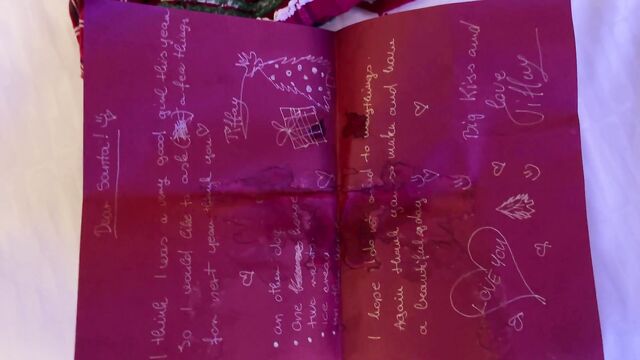 Dear Santa!
I think I was a very good girl this year
so I would like to ask a few things
for next year thank you
Tiffay
• an other dog
• one
• two
• ice
I hope I do not asked to many things.
Again thank you so make and have
a beautiful day
Big Kiss and
love
Tiffay
LOVE YOU